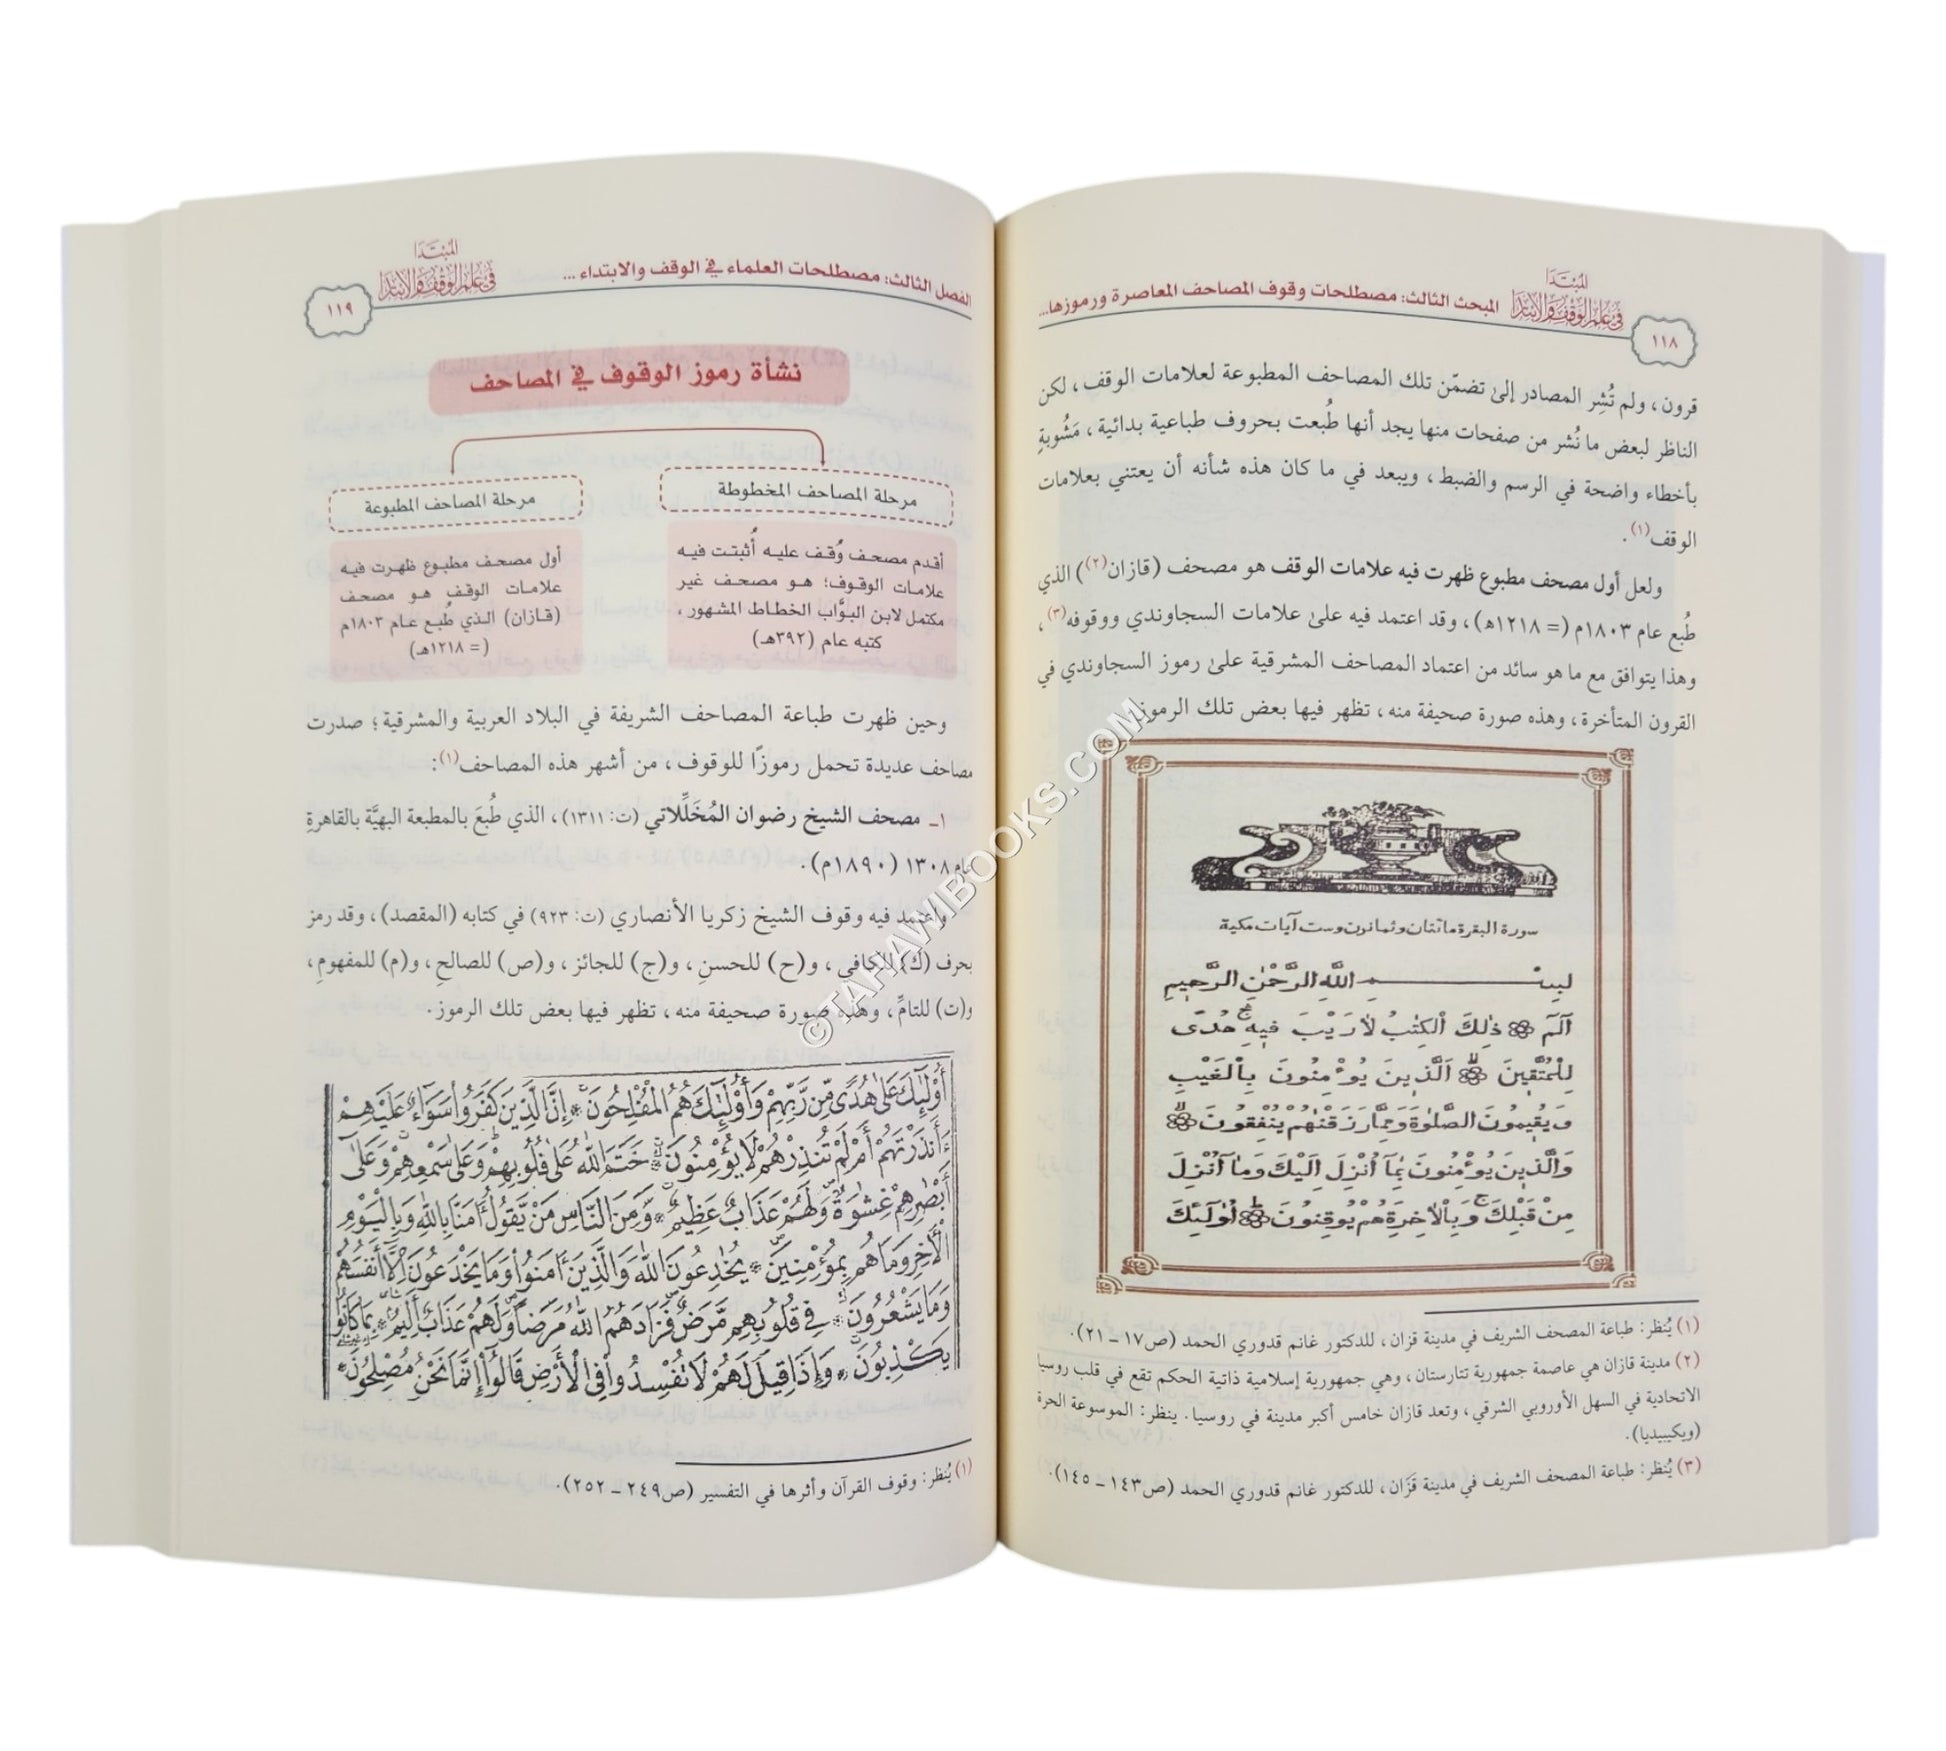 المبتدا
في علم الوقف والابتدا
المبحث الثالث: مصطلحات وقوف المصاحف المعاصرة ورموزها...
١١٨
قرون، ولم تُشِر المصادر إلىٰ تضمّن تلك المصاحف المطبوعة لعلامات الوقف، لكن
الناظر لبعض ما نُشر من صفحات منها يجد أنها طُبعت بحروف طباعية بدائية، مَشُوبةٍ
بأخطاء واضحة في الرسم والضبط، ويبعد في ما كان هذه شأنه أن يعتني بعلامات
الوقف(١).
ولعل أول مصحف مطبوع ظهرت فيه علامات الوقف هو مصحف (قازان(٢)) الذي
طُبع عام ١٨٠٣م (= ١٢١٨هـ)، وقد اعتمد فيه علىٰ علامات السجاوندي ووقوفه(٣)،
وهذا يتوافق مع ما هو سائد من اعتماد المصاحف المشرقية علىٰ رموز السجاوندي في
القرون المتأخرة، وهذه صورة صحيفة منه، تظهر فيها بعض تلك الرموز:
سورة البقرة مائتان وثمانون وست آيات مكية
بِسْــــــــمِ اللَّهِ الرَّحْمٰنِ الرَّحِيمِ
الٓمٓ ۞ ذٰلِكَ الْكِتٰبُ لَا رَيْبَ فِيهِ ج هُدًى
لِلْمُتَّقِينَ ۞ الَّذِينَ يُؤْمِنُونَ بِالْغَيْبِ
وَيُقِيمُونَ الصَّلٰوةَ وَمِمَّا رَزَقْنٰهُمْ يُنْفِقُونَ ۞
وَالَّذِينَ يُؤْمِنُونَ بِمَآ اُنْزِلَ اِلَيْكَ وَمَآ اُنْزِلَ
مِنْ قَبْلِكَ ج وَبِالْاٰخِرَةِ هُمْ يُوقِنُونَ ۞ اُولٰٓئِكَ
(١) يُنظر: طباعة المصحف الشريف في مدينة قزان، للدكتور غانم قدوري الحمد (ص١٧ ـ ٢١).
(٢) مدينة قازان هي عاصمة جمهورية تتارستان، وهي جمهورية إسلامية ذاتية الحكم تقع في قلب روسيا
الاتحادية في السهل الأوروبي الشرقي، وتعد قازان خامس أكبر مدينة في روسيا. ينظر: الموسوعة الحرة
(ويكيبيديا).
(٣) يُنظر: طباعة المصحف الشريف في مدينة قَزَان، للدكتور غانم قدوري الحمد (ص١٤٣ ـ ١٤٥).
الفصل الثالث: مصطلحات العلماء في الوقف والابتداء ...
المبتدا
في علم الوقف والابتدا
١١٩
نشأة رموز الوقوف في المصاحف
مرحلة المصاحف المخطوطة
أقدم مصحف وُقف عليه أُثبتت فيه
علامات الوقوف؛ هو مصحف غير
مكتمل لابن البوَّاب الخطاط المشهور،
كتبه عام (٣٩٢هـ)
مرحلة المصاحف المطبوعة
أول مصحف مطبوع ظهرت فيه
علامات الوقف هو مصحف
(قازان) الذي طُبع عام ١٨٠٣م
(= ١٢١٨هـ)
وحين ظهرت طباعة المصاحف الشريفة في البلاد العربية والمشرقية؛ صدرت
مصاحف عديدة تحمل رموزًا للوقوف، من أشهر هذه المصاحف(١):
١ـ مصحف الشيخ رضوان المُخَلِّلاتي (ت: ١٣١١)، الذي طُبعَ بالمطبعة البهيَّة بالقاهرةِ
عام ١٣٠٨ (١٨٩٠م).
واعتمد فيه وقوف الشيخ زكريا الأنصاري (ت: ٩٢٣) في كتابه (المقصد)، وقد رمز
بحرف (ك) للكافي، و(ح) للحسنِ، و(ج) للجائز، و(ص) للصالحِ، و(م) للمفهومِ،
و(ت) للتامِّ، وهذه صورة صحيفة منه، تظهر فيها بعض تلك الرموز.
أُوْلَٰٓئِكَ عَلَىٰ هُدًى مِّن رَّبِّهِمْ وَأُوْلَٰٓئِكَ هُمُ الْمُفْلِحُونَ * إِنَّ الَّذِينَ كَفَرُواْ سَوَآءٌ عَلَيْهِمْ
ءَأَنذَرْتَهُمْ أَمْ لَمْ تُنذِرْهُمْ لَا يُؤْمِنُونَ * خَتَمَ اللَّهُ عَلَىٰ قُلُوبِهِمْ وَعَلَىٰ سَمْعِهِمْ وَعَلَىٰٓ
أَبْصَٰرِهِمْ غِشَٰوَةٌ وَلَهُمْ عَذَابٌ عَظِيمٌ * وَمِنَ النَّاسِ مَن يَقُولُ ءَامَنَّا بِاللَّهِ وَبِالْيَوْمِ
الْأَخِرِ وَمَا هُم بِمُؤْمِنِينَ * يُخَٰدِعُونَ اللَّهَ وَالَّذِينَ ءَامَنُواْ وَمَا يَخْدَعُونَ إِلَّآ أَنفُسَهُمْ
وَمَا يَشْعُرُونَ * فِي قُلُوبِهِم مَّرَضٌ فَزَادَهُمُ اللَّهُ مَرَضًا وَلَهُمْ عَذَابٌ أَلِيمٌ بِمَا كَانُواْ
يَكْذِبُونَ * وَإِذَا قِيلَ لَهُمْ لَا تُفْسِدُواْ فِي الْأَرْضِ قَالُوٓاْ إِنَّمَا نَحْنُ مُصْلِحُونَ *
(١) يُنظر: وقوف القرآن وأثرها في التفسير (ص٢٤٩ ـ ٢٥٢).
© TAHAWIBOOKS.COM